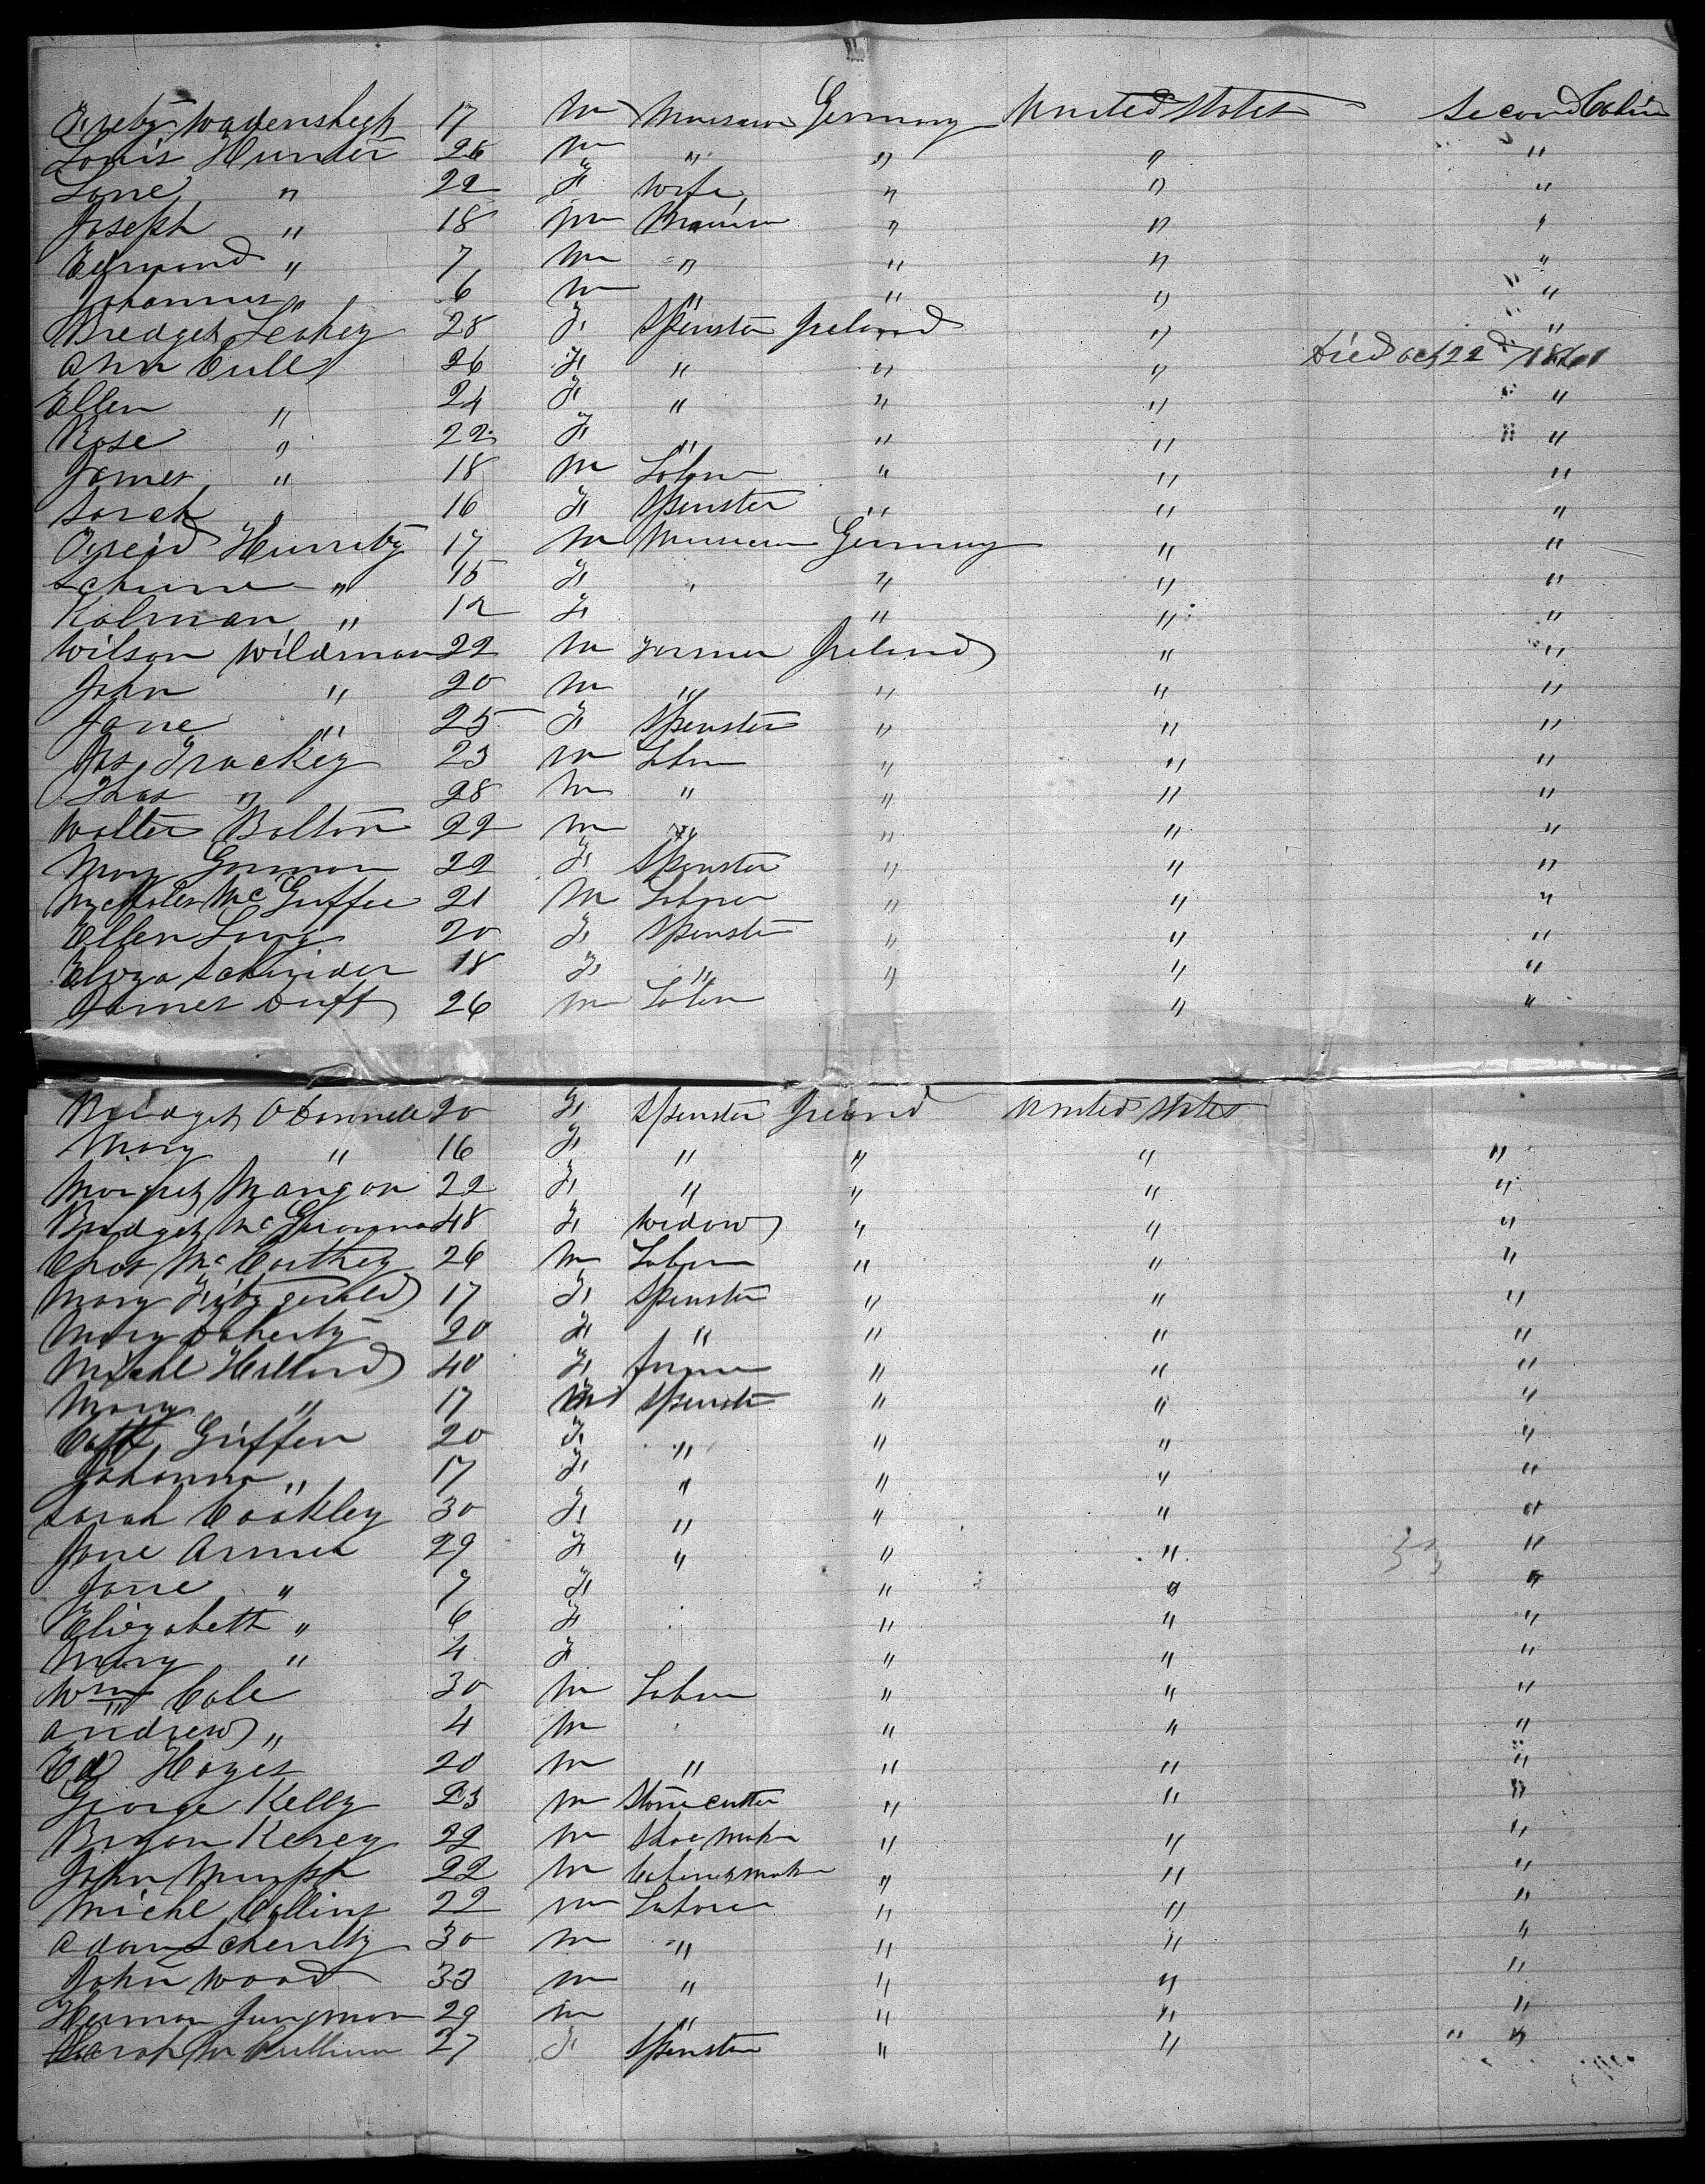 17 m Germany United States Second Cabin
Louis Hunter 26 m " " " "
Lane " 22 F wife " " "
Joseph " 18 m " " "
Edmond " 7 m " " " "
Johannes " 6 m " " " "
Bredget Leahey 28 F Spenster Ireland " "
Ann Cull 26 F " " " Died Oct 22d 1861
Ellen " 24 F " " " "
Rose " 22 F " " " "
James " 18 m Labor " " "
Sarah " 16 F Spenster " " "
17 m Germany " "
" 15 F " " " "
Kalman " 12 F " " "
Wilson Wildman 22 m Farmer Ireland " "
John " 20 m " " " "
Jane " 25 F Spenster " " "
Jas Frackey 23 m Labor " " "
Thos " 28 m " " " "
Walter Bolton 22 m " " " "
Mary Gorman 22 F Spenster " " "
McGuffee 21 m Laborer " " "
Ellen Long 20 F Spenster " " "
Schnider 18 F " " " "
James Duff 26 m Labor " "
Bridget O Donnell 20 F Spenster Ireland United States
Mary " 16 F " " " "
Margret Mangan 22 F " " " "
Bridget 48 F Widow " " "
Chas McCarthey 26 m Labor " " "
Mary Fitzgerald 17 F Spenster " " "
Mary Doherty 20 F " " " "
Michl Hilland 40 F farmer " " "
Mary " 17 m Spenster " " "
Cath Griffen 20 F " " " "
Johanna " 17 F " " " "
Sarah Coakley 30 F " " " "
Jane Armer 29 F " " " 33 "
Jane " 7 F " " "
Elizabeth " 6 F " " "
Mary " 4 F " " "
Wm Cole 30 m Labor " " "
Andrew " 4 m " " "
Ed Hayes 20 m " " " "
George Kelly 23 m Stone cutter " " "
Bryan 22 m Shoe maker " " "
John 22 m Cabinetmaker " " "
Michl Collins 22 m Laborer " " "
Adam 30 m " " " "
John Wood 33 m " " " "
Herman Jungman 29 m " " " "
Sarah 27 F Spenster " " " "